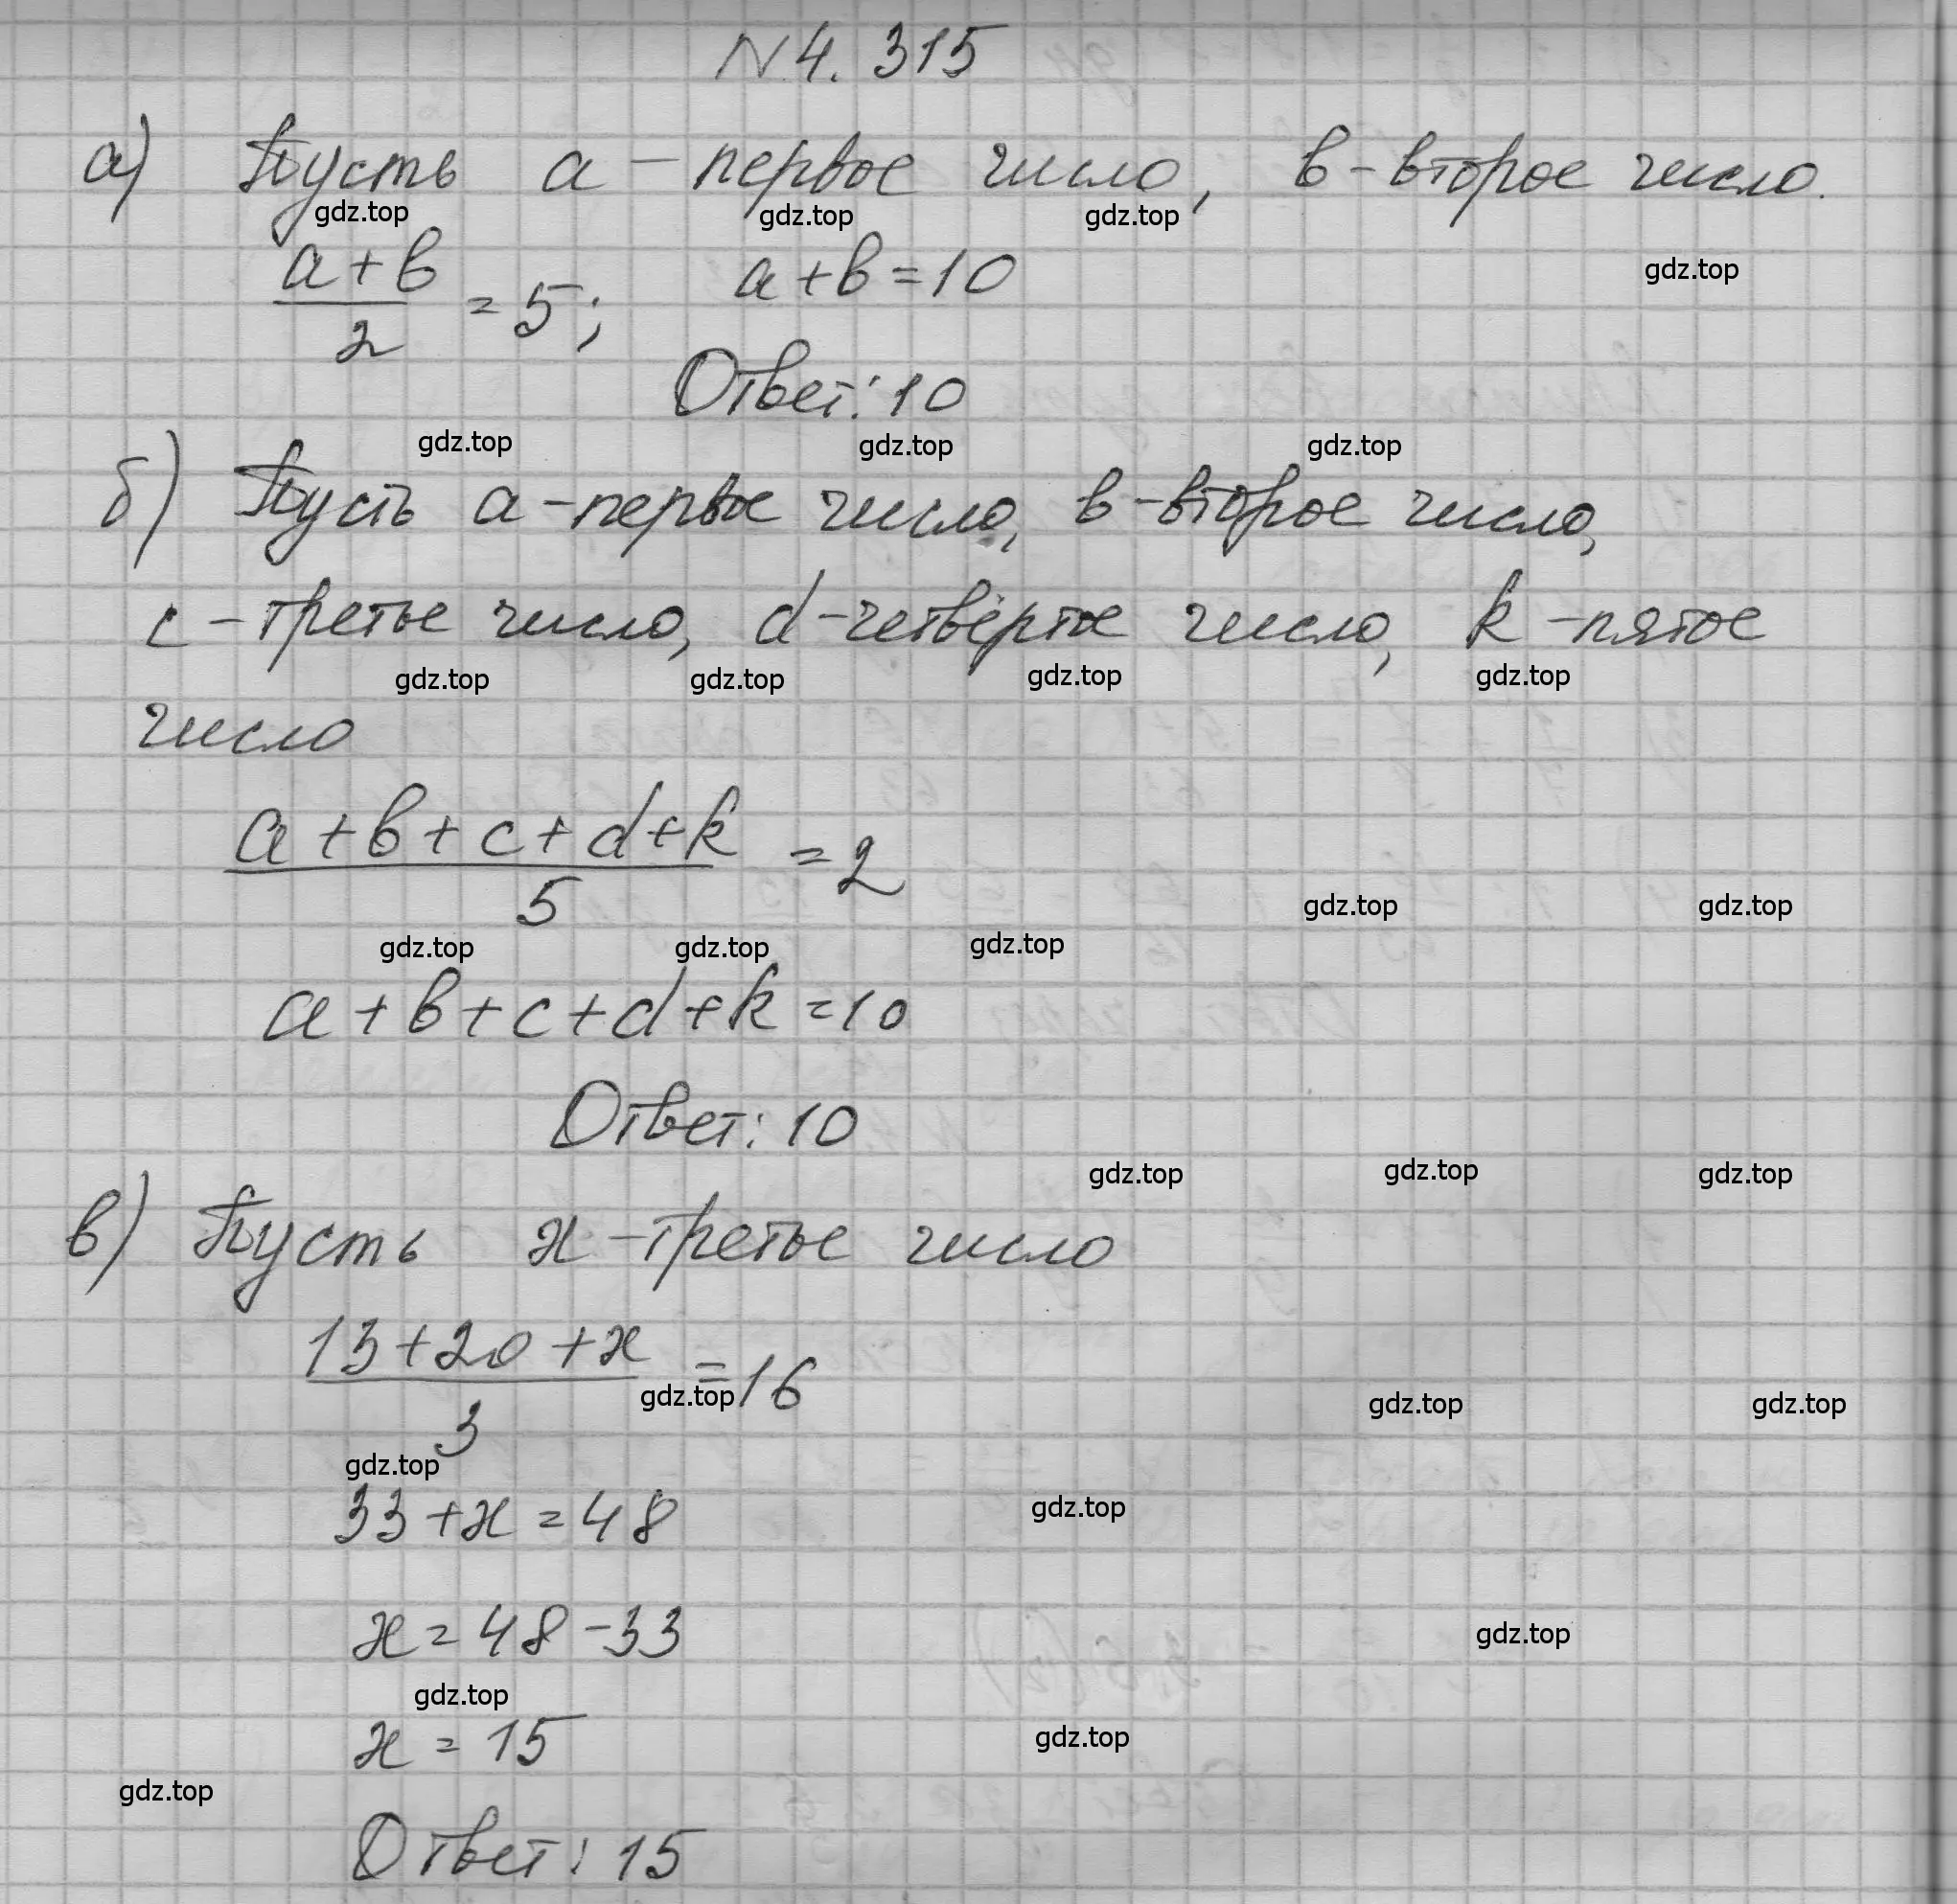 N 4.315
а) Пусть a – первое число, в – второе число.
gdz.top gdz.top gdz.top
(a+в)/2 = 5; a+в=10
gdz.top
Ответ: 10
gdz.top gdz.top gdz.top
б) Пусть a – первое число, в – второе число,
c – третье число, d – четвёртое число, k – пятое
gdz.top gdz.top gdz.top gdz.top
число
(a+в+c+d+k)/5 = 2
gdz.top gdz.top
gdz.top gdz.top gdz.top
a+в+c+d+k=10
Ответ: 10
gdz.top gdz.top gdz.top
в) Пусть x – третье число
(13+20+x)/3 = 16
gdz.top gdz.top gdz.top
gdz.top
33+x=48
gdz.top
x=48-33
gdz.top
gdz.top
x=15
gdz.top
gdz.top
Ответ: 15